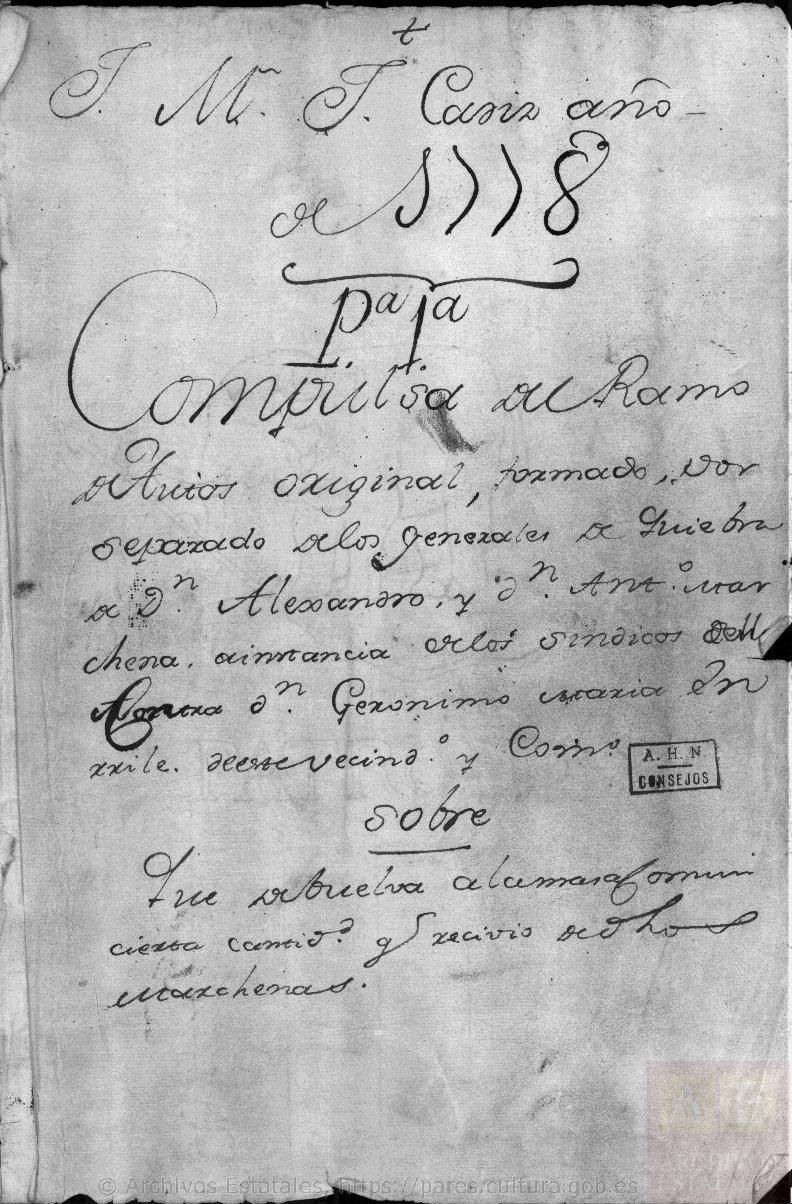 +
J. Mª. J. Cadiz año
de 1778
pª jª
Compulsa del Ramo
de Autos original, formado, por
separado de los generales de Quiebra
de Dn. Alexandro, y dn. Antº Mar
chena. a instancia de los Sindicos de ella
Contra dn. Geronimo Maria En
rrile. de este vecindº y Comº
sobre
Que debuelva a la masa Comun
cierta cantidd. qe recivio de dhos
Marchenas.
A. H. N.
CONSEJOS
© Archivos Estatales, https://pares.cultura.gob.es